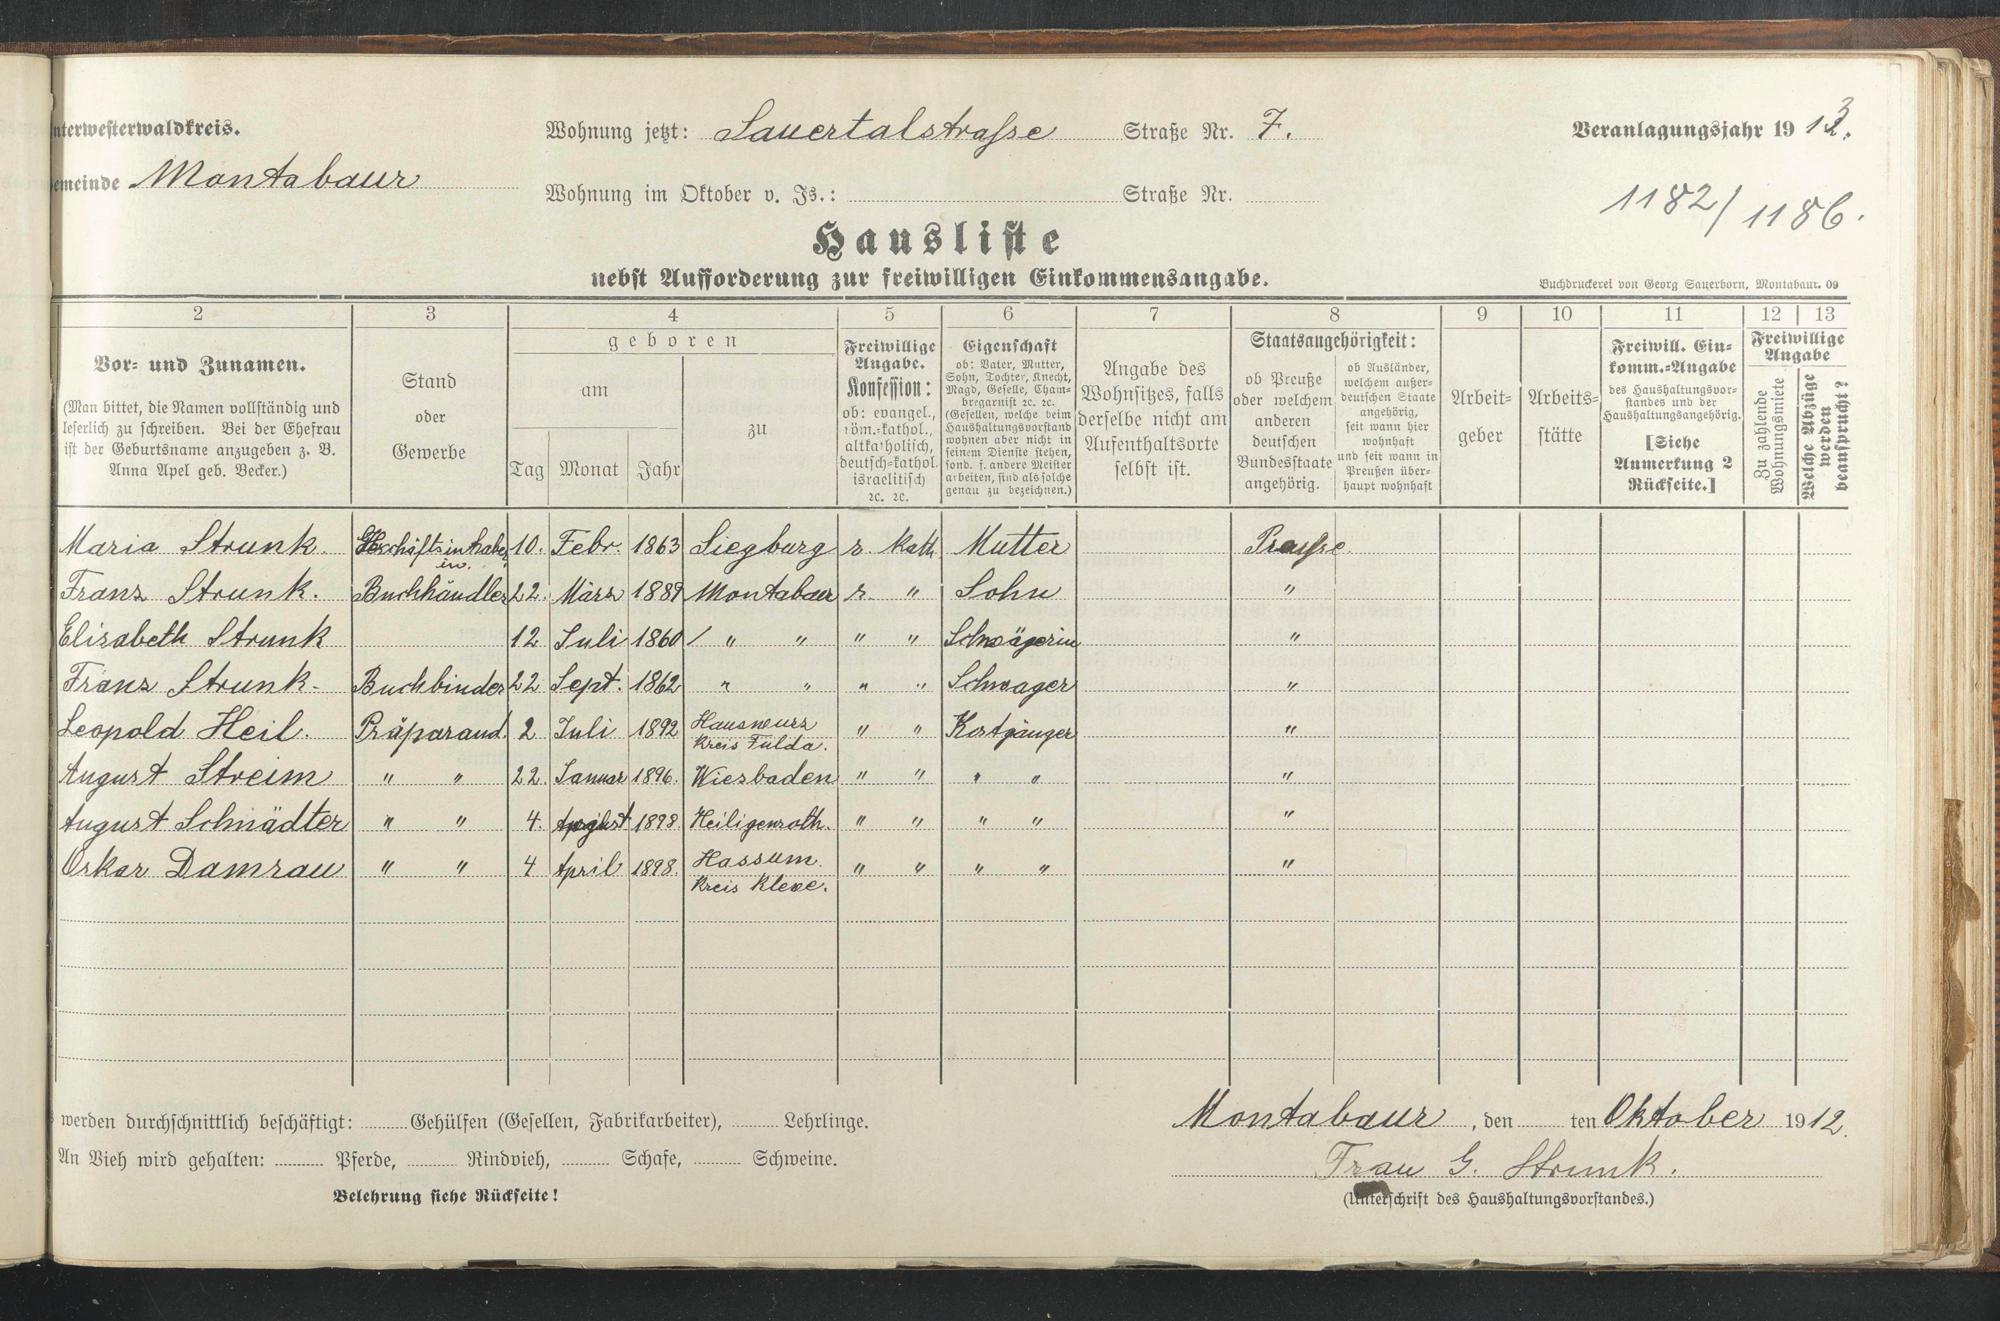 nterwesterwaldkreis.
Wohnung jetzt: Sauertalstrasse Straße Nr. 7.
Veranlagungsjahr 19 13.
emeinde Montabaur
Wohnung im Oktober v. Js.: Straße Nr.
1182/1186.
Hausliste
nebst Aufforderung zur freiwilligen Einkommensangabe.
Buchdruckerei von Georg Sauerborn, Montabaur. 09
2 3 4 5 6 7 8 9 10 11 12 13
Vor- und Zunamen.
(Man bittet, die Namen vollständig und
leserlich zu schreiben. Bei der Ehefrau
ist der Geburtsname anzugeben z. B.
Anna Apel geb. Becker.)
Stand
oder
Gewerbe
geboren
am
zu
Tag Monat Jahr
Freiwillige
Angabe.
Konfession:
ob: evangel.,
röm.-kathol.,
altkatholisch,
deutsch-kathol.
israelitisch
ꝛc. ꝛc.
Eigenschaft
ob: Vater, Mutter,
Sohn, Tochter, Knecht,
Magd, Geselle, Cham-
bregarnist ꝛc. ꝛc.
(Gesellen, welche beim
Haushaltungsvorstand
wohnen aber nicht in
seinem Dienste stehen,
sond. f. andere Meister
arbeiten, sind als solche
genau zu bezeichnen.)
Angabe des
Wohnsitzes, falls
derselbe nicht am
Aufenthaltsorte
selbst ist.
Staatsangehörigkeit:
ob Preuße
oder welchem
anderen
deutschen
Bundesstaate
angehörig.
ob Ausländer,
welchem außer-
deutschen Staate
angehörig,
seit wann hier
wohnhaft
und seit wann in
Preußen über-
haupt wohnhaft
Arbeit-
geber
Arbeits-
stätte
Freiwill. Ein-
komm.-Angabe
des Haushaltungsvor-
standes und der
Haushaltungsangehörig.
[Siehe
Anmerkung 2
Rückseite.]
Freiwillige
Angabe
Zu zahlende
Wohnungsmiete
Welche Abzüge
werden
beansprucht?
Maria Strunk. Geschäftsinhaberin. 10. Febr. 1863 Siegburg r. kath. Mutter Preusse
Franz Strunk. Buchhändler 22. März 1889 Montabaur r. " Sohn "
Elisabeth Strunk 12 Juli 1860 / " " " " Schwägerin "
Franz Strunk. Buchbinder 22 Sept. 1862 " " " " Schwager "
Leopold Heil. Präparand. 2 Juli 1892 Hausneurz Kreis Fulda. " " Kostgänger "
August Streim " " 22. Januar 1896. Wiesbaden " " " " "
August Schnädter " " 4. 1898 Heiligenroth. " " " " "
Oskar Damrau " " 4 April 1898. Hassum. Kreis Kleve. " " " " "
werden durchschnittlich beschäftigt: Gehülfen (Gesellen, Fabrikarbeiter), Lehrlinge.
An Vieh wird gehalten: Pferde, Rindvieh, Schafe, Schweine.
Belehrung siehe Rückseite!
Montabaur, den ten Oktober 1912.
Frau G. Strunk.
(Unterschrift des Haushaltungsvorstandes.)